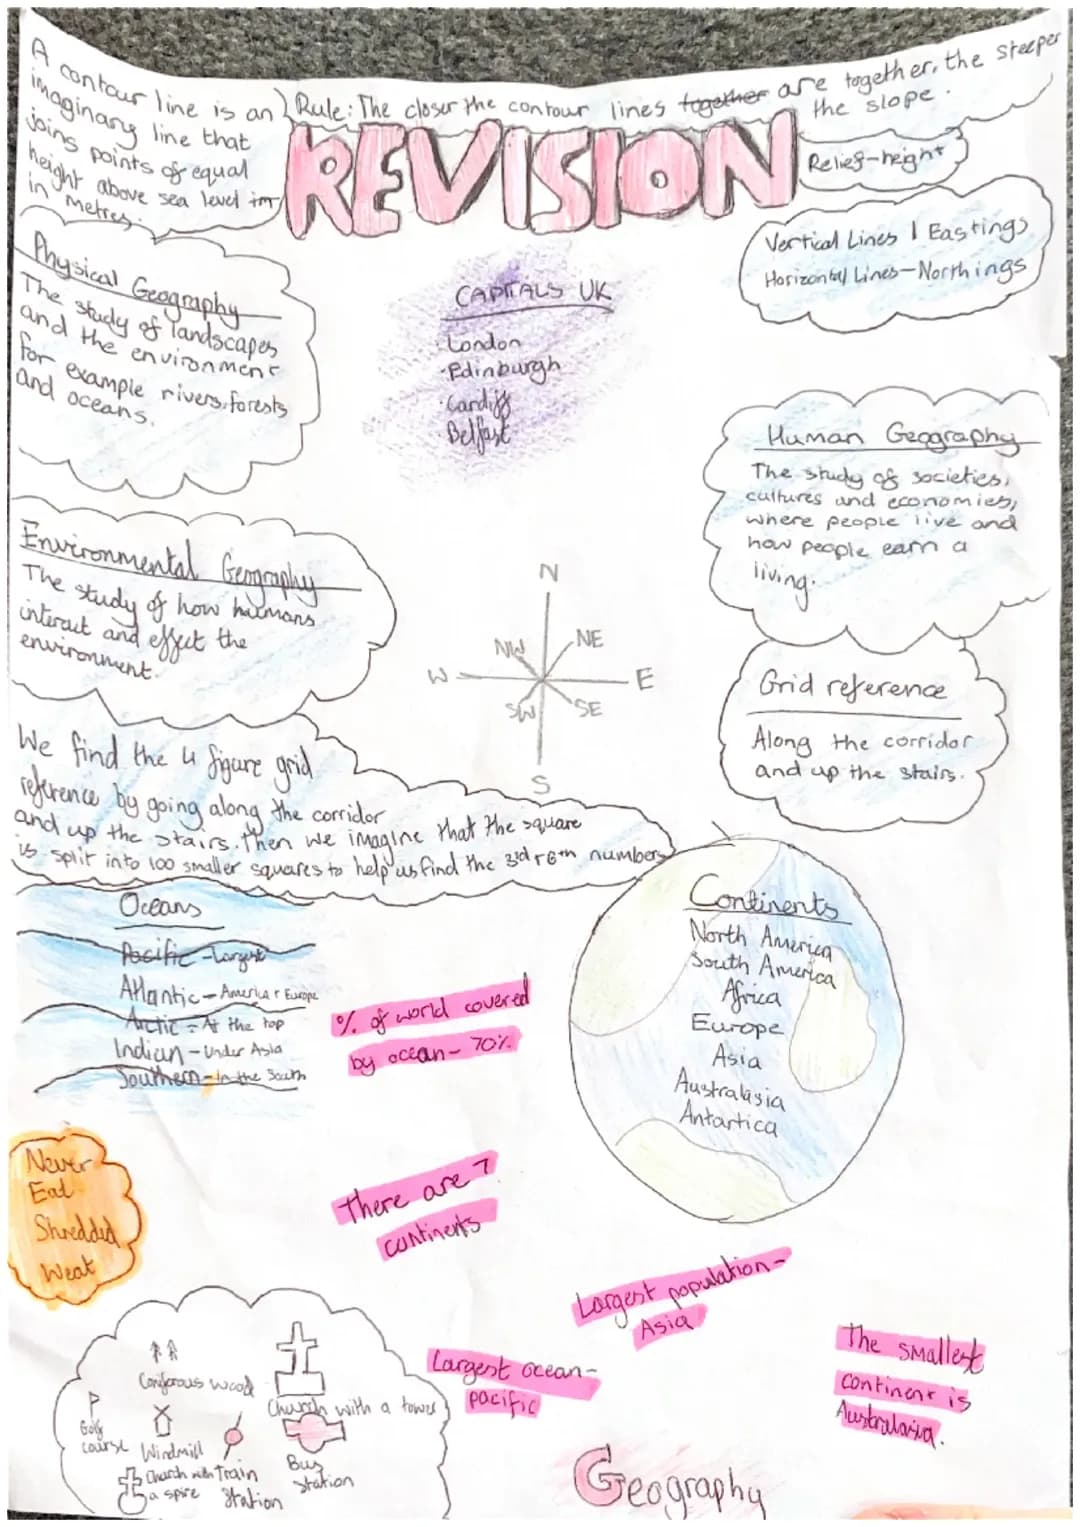 A contour line is an
imaginary line that
joins points of equal
height above sea level in
in Metres.
Rule: The closer the contour lines together are together, the steeper
the slope.
REVISION
Relief-height
Vertical Lines | Eastings
Horizontal Lines-Northings
Physical Geography
The study of landscapes
and the environment
for example rivers, forests
and oceans.
CAPITALS UK
·London
·Edinburgh
·Cardiff
·Belfast
Human Geography
The study of societies,
cultures and economies,
where people live and
how people earn a
living.
Environmental Geography
The study of how humans
interact and effect the
environment.
N
NW
NE
W
E
SW
SE
S
Grid reference
Along the corridor
and up the stairs.
We find the 4 figure grid
reference by going along the corridor
and up the stairs. Then we imagine that the square
is split into 100 smaller squares to help us find the 3rd + 6th numbers
Oceans
Pacific - Largest
Atlantic - America + Europe
Arctic - At the top
Indian - Under Asia
Southern - In the South
% of world covered
by ocean - 70%
Continents
North America
South America
Africa
Europe
Asia
Australasia
Antartica
Never
Eat
Shredded
Weat
There are 7
continents
Largest population -
Asia
Largest ocean -
pacific
The smallest
continent is
Australasia.
Coniforous wood
Church with a tower
Golf
course
Windmill
Church with
a spire
Train
Station
Bus
Station
Geography